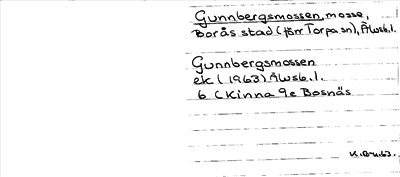 Gunnbergsmossen, mosse,
Borås stad (förr Torpa sn), Älvsb.l.
Gunnbergsmossen
ek (1963) Älvsb.l.
6 (Kinna 9e Bosnäs
K.B-n.63.